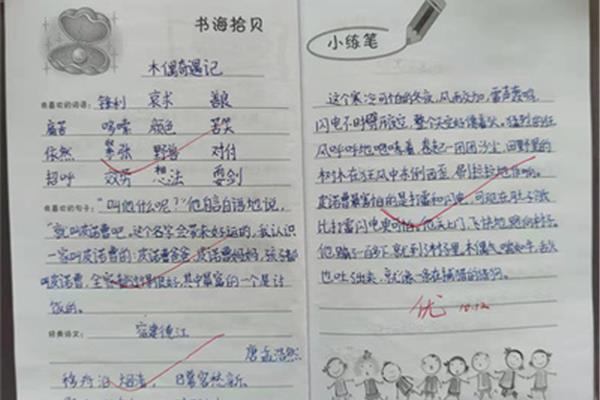 书海拾贝
木偶奇遇记
我喜欢的词语：锋利 哀求 善良
痛苦 哆嗦 颜色 苦笑
依然 紧张 野兽 对付
招呼 效劳 想法 耍剑
我喜欢的句子："叫他什么呢？"他自言自语地说，
"就叫皮诺曹吧，这个名字会带来好运的，我认识
一家叫皮诺曹的：皮诺曹爸爸，皮诺曹妈妈，孩子都
叫皮诺曹，全家都过得很好，其中最富的一个是讨
饭的。
经典诗文： 宿建德江
唐孟浩然
移舟泊烟渚，日暮客愁新。
小练笔
这个寒冷可怕的冬夜，风雨交加，雷声轰鸣，
闪电不时劈破夜空，整个天空好像着火。猛烈的狂
风呼呼地咆哮着，卷起一团团沙尘，田野里的
树木在狂风中东倒西歪，
皮诺曹最害怕的是打雷和闪电，可现在肚子饿
比打雷闪电更可怕。他关上门，飞快地跑向村子。
他蹦了一百下，就到了村子里，木偶气喘如牛，舌头
也吐了出来，就像一条在捕猎的猎狗。
优 10.12